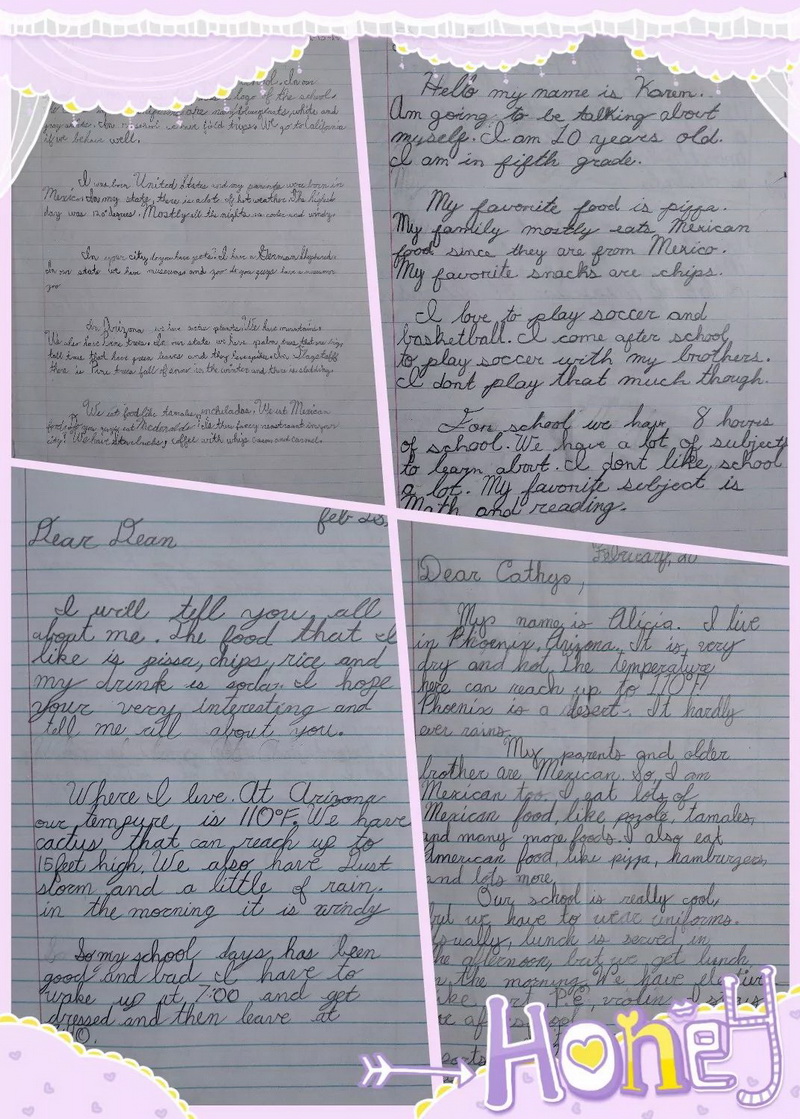 logo of the school.
gray socks. In my school we have field trips. We go to California
if we behave well.
I was born United States and my parents were born in
Mexico. In my state, there is a lot of hot weather. The highest
day was 120 degrees. Mostly all the nights is cooler and windy.
In your city do you have pets? I have a German Shepherd.
In my state we have museums and zoo do you guys have a museum
zoo
In Arizona we have cactus plants. We have mountains.
We also have trees. In our state we have palm trees that are big,
tall trees that have green leaves and they
there is Pine trees full of snow in the winter and there is sledding.
We eat food like tamales, enchiladas. We eat Mexican
food. Do you guys eat Mcdonalds? Is there fancy restaurant in your
city? We have Starbucks, coffee with whip cream and caramel.
Hello my name is Karen.
Am going to be talking about
myself. I am 10 years old.
I am in fifth grade.
My favorite food is pizza.
My family mostly eats Mexican
food since they are from Mexico.
My favorite snacks are chips.
I love to play soccer and
basketball. I come after school
to play soccer with my brothers.
I dont play that much though.
For school we have 8 hours
of school. We have a lot of subjects
to learn about. I dont like school
a lot. My favorite subject is
Math and reading.
feb 25,
Dear Dean
I will tell you all
about me. The food that I
like is pissa, chips, rice and
my drink is soda. I hope
your very interesting and
tell me all about you.
Where I live. At Arizona
our tempure is 110°F. We have
cactus that can reach up to
15 feet high. We also have dust
storm and a little of rain.
in the morning it is windy
So my school days has been
good and bad I have to
wake up at 7:00 and get
dressed and then leave at
February, 20
Dear Cathys,
My name is Alicia. I live
in Phoenix, Arizona. It is very
dry and hot. The temperature
here can reach up to 110°F!
Phoenix is a desert. It hardly
ever rains.
My parents and older
brother are Mexican. So, I am
Mexican too. I eat lots of
Mexican food, like pozole, tamales,
and many more foods. I also eat
American food, like pizza, hamburgers,
and lots more.
Our school is really cool,
but we have to wear uniforms.
Usually, lunch is served in
the afternoon, but we get lunch
in the morning. We have
like art, P.E, violin
Honey